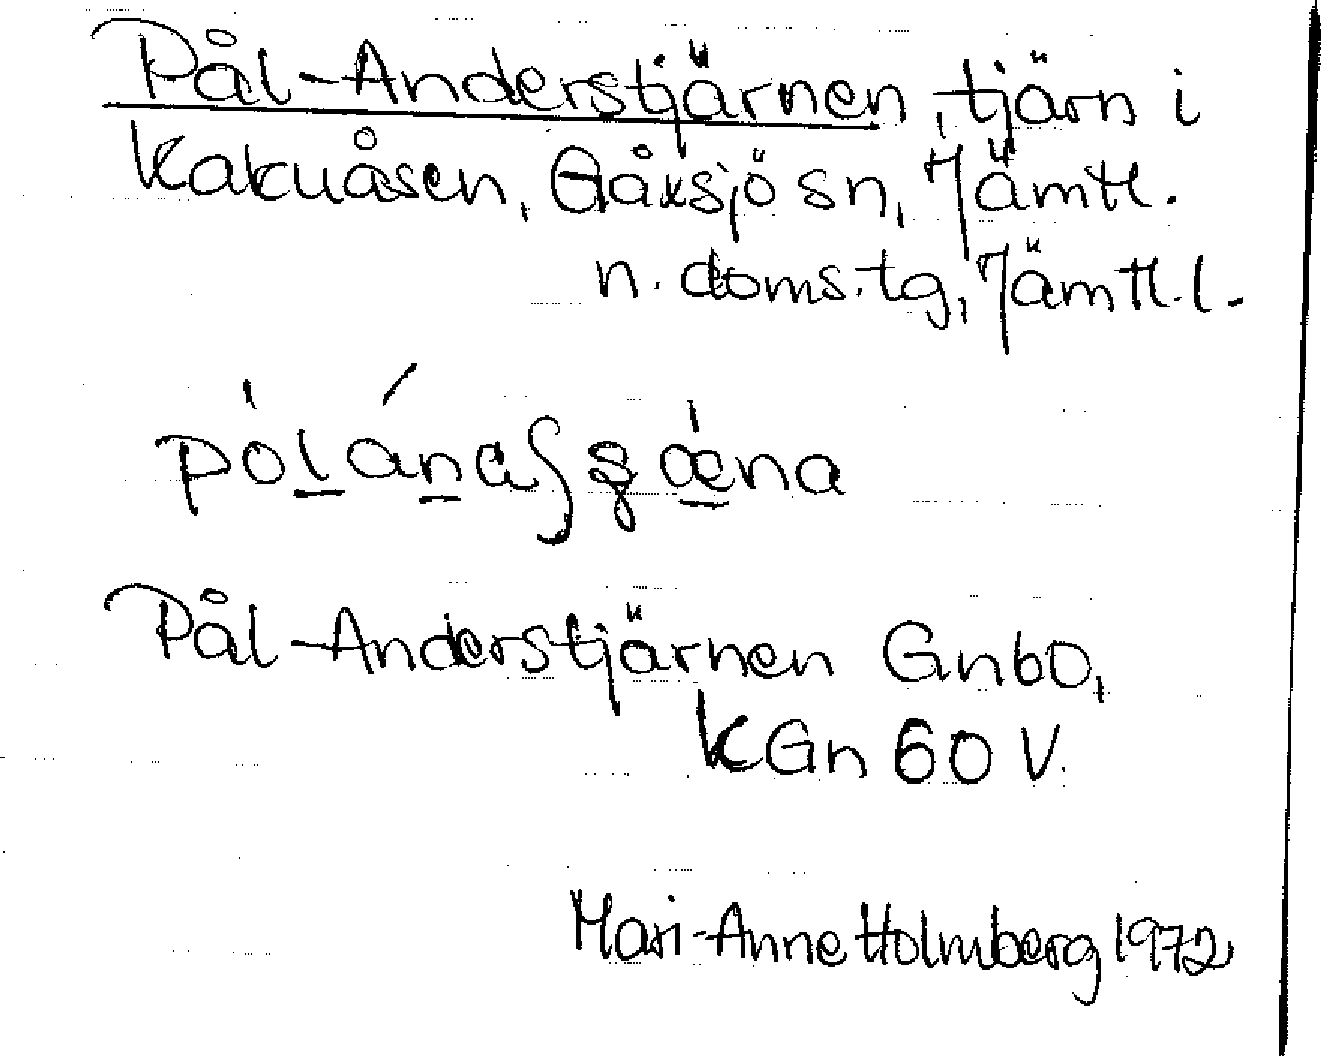 Pål-Anderstjärnen, tjärn i
Kakuåsen, Gåxsjö sn, Jämtl.
n. doms.tg, Jämtl.l.
Pål-Anderstjärnen Gn60,
KGn 60 V.
Mari-Anne Holmberg 1972